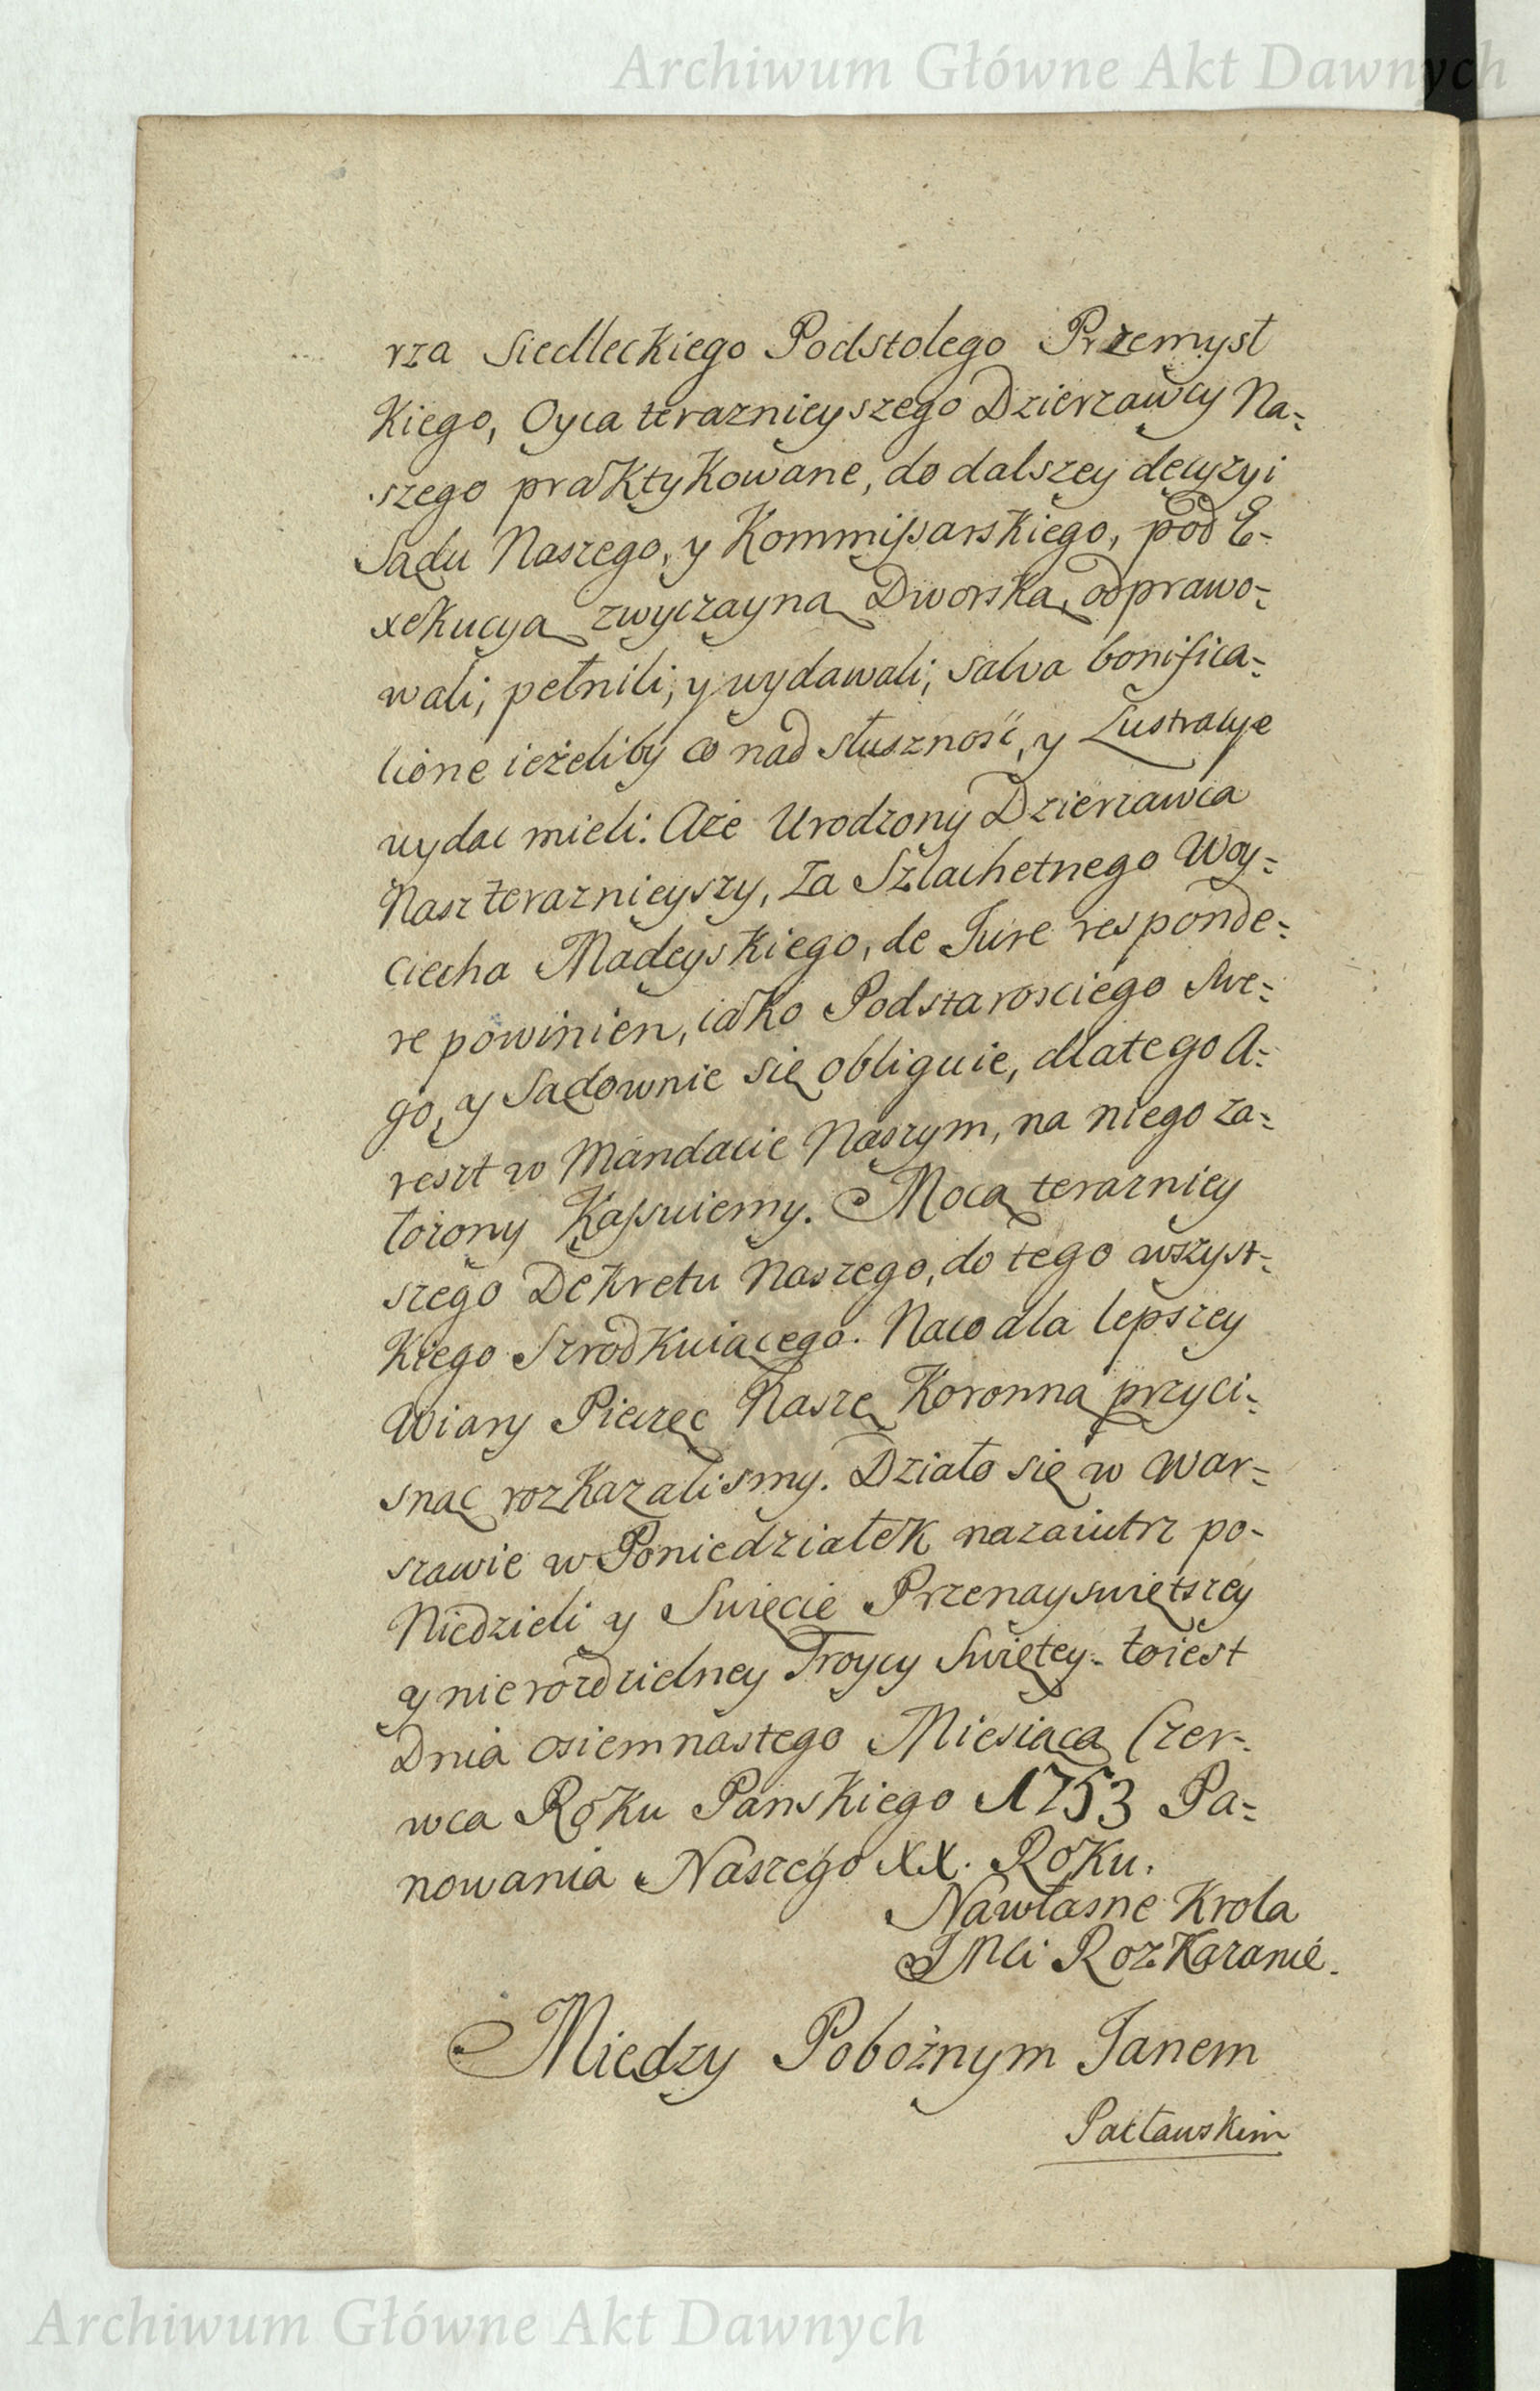 Archiwum Główne Akt Dawnych
rza Siedleckiego Podstolego Przemysł
kiego, Oyca teraznieyszego Dzierzawcy Na=
szego praktykowane, do dalszey decyzyi
Sądu Naszego, y Kommissarskiego, pod E-
xekucyą zwyczayną Dworską, odprawo=
wali, pełnili, y wydawali, salva bonifica=
tione ieżeliby co nad słuszność, y Lustracyę
wydac mieli. Aże Urodzony Dzierzawca
Nasz teraznieyszy, za Szlachetnego Woy=
ciecha Madeyskiego, de Jure responde=
re powinien, iako Podstarosciego Swe=
go, y Sądownie się obliguie, dlatego A=
reszt w Mandacie Naszym, na niego za=
łozony Kassuiemy. Mocą terazniey
szego Dekretu Naszego, do tego wszyst=
kiego Szrodkuiącego. Naco dla lepszey
Wiary Pieczęc Naszę Koronną przyci=
snąc rozkazalismy. Działo się w War=
szawie w Poniedziałek nazaiutrz po-
Niedzieli y Swięcie Przenayswiętszey
y nierozdzielney Troycy Swiętey. toiest
Dnia osiemnastego Miesiąca Czer=
wca Roku Panskiego 1753 Pa=
nowania Naszego XX. Roku.
Nawłasne Krola
JMci Rozkazanie.
Między Pobożnym Janem
Pacławskim
Archiwum Główne Akt Dawnych